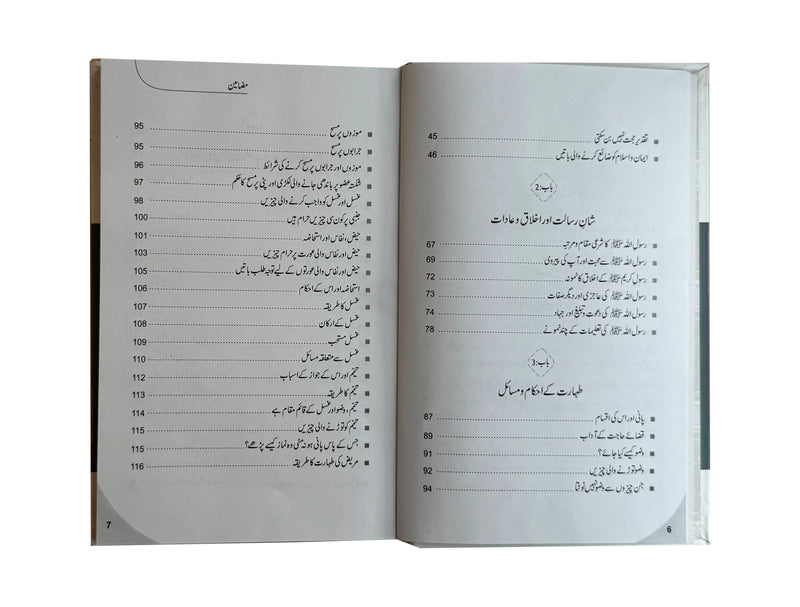 تقدیر حجت نہیں بن سکتی 45
ایمان و اسلام کو ضائع کرنے والی باتیں 46
باب:2
شانِ رسالت اور اخلاق و عادات
رسول اللہ ﷺ کا شرعی مقام و مرتبہ 67
رسول اللہ ﷺ سے محبت اور آپ کی پیروی 69
رسولِ کریم ﷺ کے اخلاق کا نمونہ 72
رسول اللہ ﷺ کی عاجزی اور دیگر صفات 73
رسول اللہ ﷺ کی دعوت و تبلیغ اور جہاد 74
رسول اللہ ﷺ کی تعلیمات کے چند نمونے 78
باب:3
طہارت کے احکام و مسائل
پانی اور اس کی اقسام 87
قضائے حاجت کے آداب 89
وضو کیسے کیا جائے؟ 91
وضو توڑنے والی چیزیں 92
جن چیزوں سے وضو نہیں ٹوٹتا 94
6
مضامین
موزوں پر مسح 95
جرابوں پر مسح 95
موزوں اور جرابوں پر مسح کرنے کی شرائط 96
شکستہ عضو پر باندھی جانے والی لکڑی اور پٹی پر مسح کا حکم 97
غسل اور غسل کو واجب کرنے والی چیزیں 98
جنبی پر کون سی چیزیں حرام ہیں 100
حیض، نفاس اور استحاضہ 101
حیض اور نفاس والی عورت پر حرام چیزیں 103
حیض اور نفاس والی عورتوں کے لیے توجہ طلب باتیں 105
استحاضہ اور اس کے احکام 106
غسل کا طریقہ 107
غسل کے ارکان 108
غسل مستحب 109
غسل سے متعلقہ مسائل 110
تیمّم اور اس کے جواز کے اسباب 112
تیمّم کا طریقہ 113
تیمّم، وضو اور غسل کے قائم مقام ہے 114
تیمّم کو توڑنے والی چیزیں 115
جس کے پاس پانی ہو نہ مٹی وہ نماز کیسے پڑھے؟ 115
مریض کی طہارت کا طریقہ 116
7